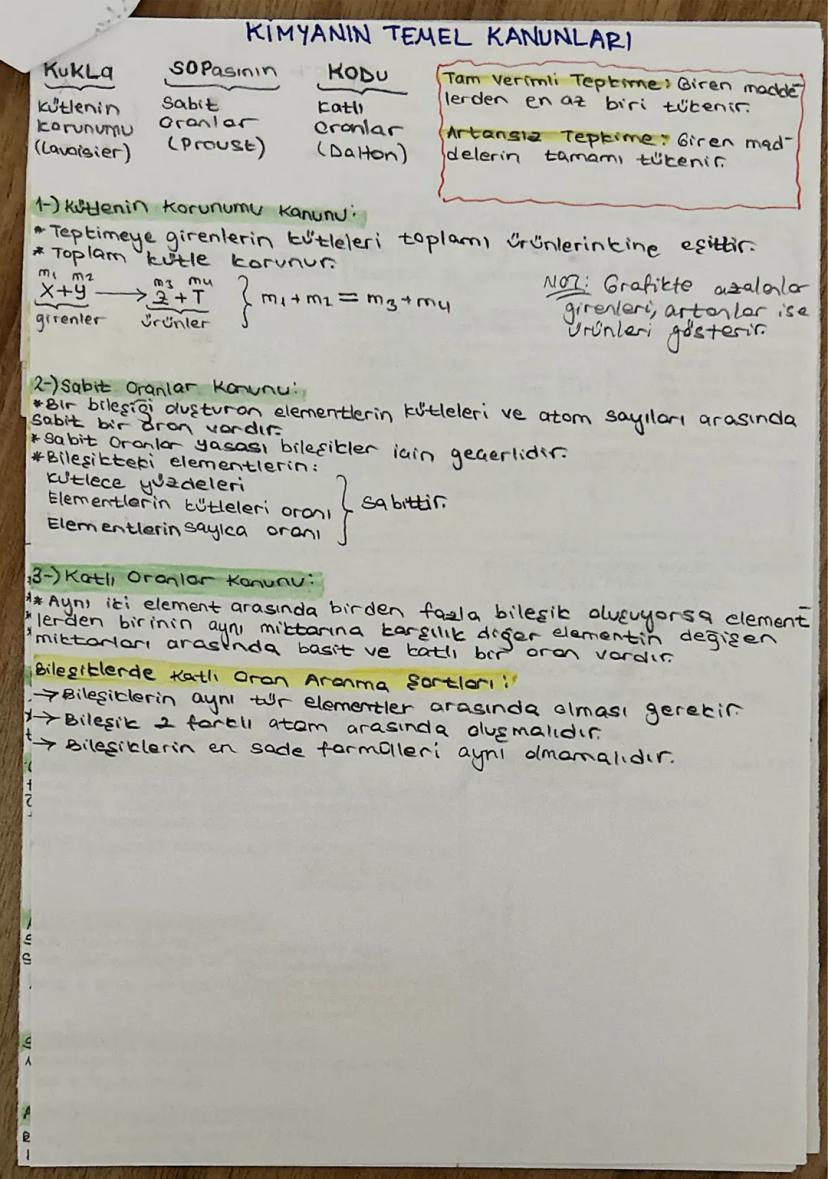 KİMYANIN TEMEL KANUNLARI
KUKLA SOPasının KODU
Kütlenin Sabit Katlı
Korunumu Oranlar Oranlar
(Lavoisier) (Proust) (Dalton)
Tam Verimli Tepkime: Giren madde-
lerden en az biri tükenir.
Artansız Tepkime: Giren mad-
delerin tamamı tükenir.
1-) Kütlenin Korunumu Kanunu:
* Tepkimeye girenlerin kütleleri toplamı ürünlerinkine eşittir.
* Toplam kütle korunur.
m1 m2 m3 m4
X+Y → Z+T } m1+m2 = m3+m4
girenler ürünler
NOT: Grafikte azalanlar
girenleri, artanlar ise
ürünleri gösterir.
2-) Sabit Oranlar Kanunu:
* Bir bileşiği oluşturan elementlerin kütleleri ve atom sayıları arasında
sabit bir oran vardır.
* Sabit Oranlar yasası bileşikler için geçerlidir.
* Bileşikteki elementlerin:
Kütlece yüzdeleri
Elementlerin kütleleri oranı } sabittir.
Elementlerin sayıca oranı
3-) Katlı Oranlar Kanunu:
* Aynı iki element arasında birden fazla bileşik oluşuyorsa element-
lerden birinin aynı miktarına karşılık diğer elementin değişen
miktarları arasında basit ve katlı bir oran vardır.
Bileşiklerde Katlı Oran Aranma Şartları:
→ Bileşiklerin aynı tür elementler arasında olması gerekir.
→ Bileşik 2 farklı atom arasında oluşmalıdır.
→ Bileşiklerin en sade formülleri aynı olmamalıdır.